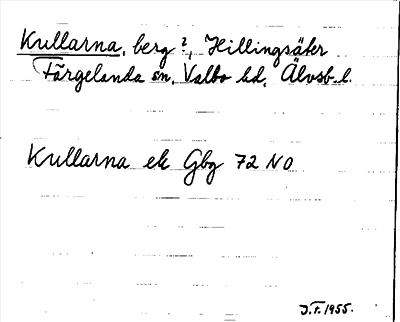 Kullarna, berg?, Hillingsäter
Färgelanda sn, Valbo hd, Älvsb. l.
Kullarna ek Gbg 72 NO
J.F. 1955.